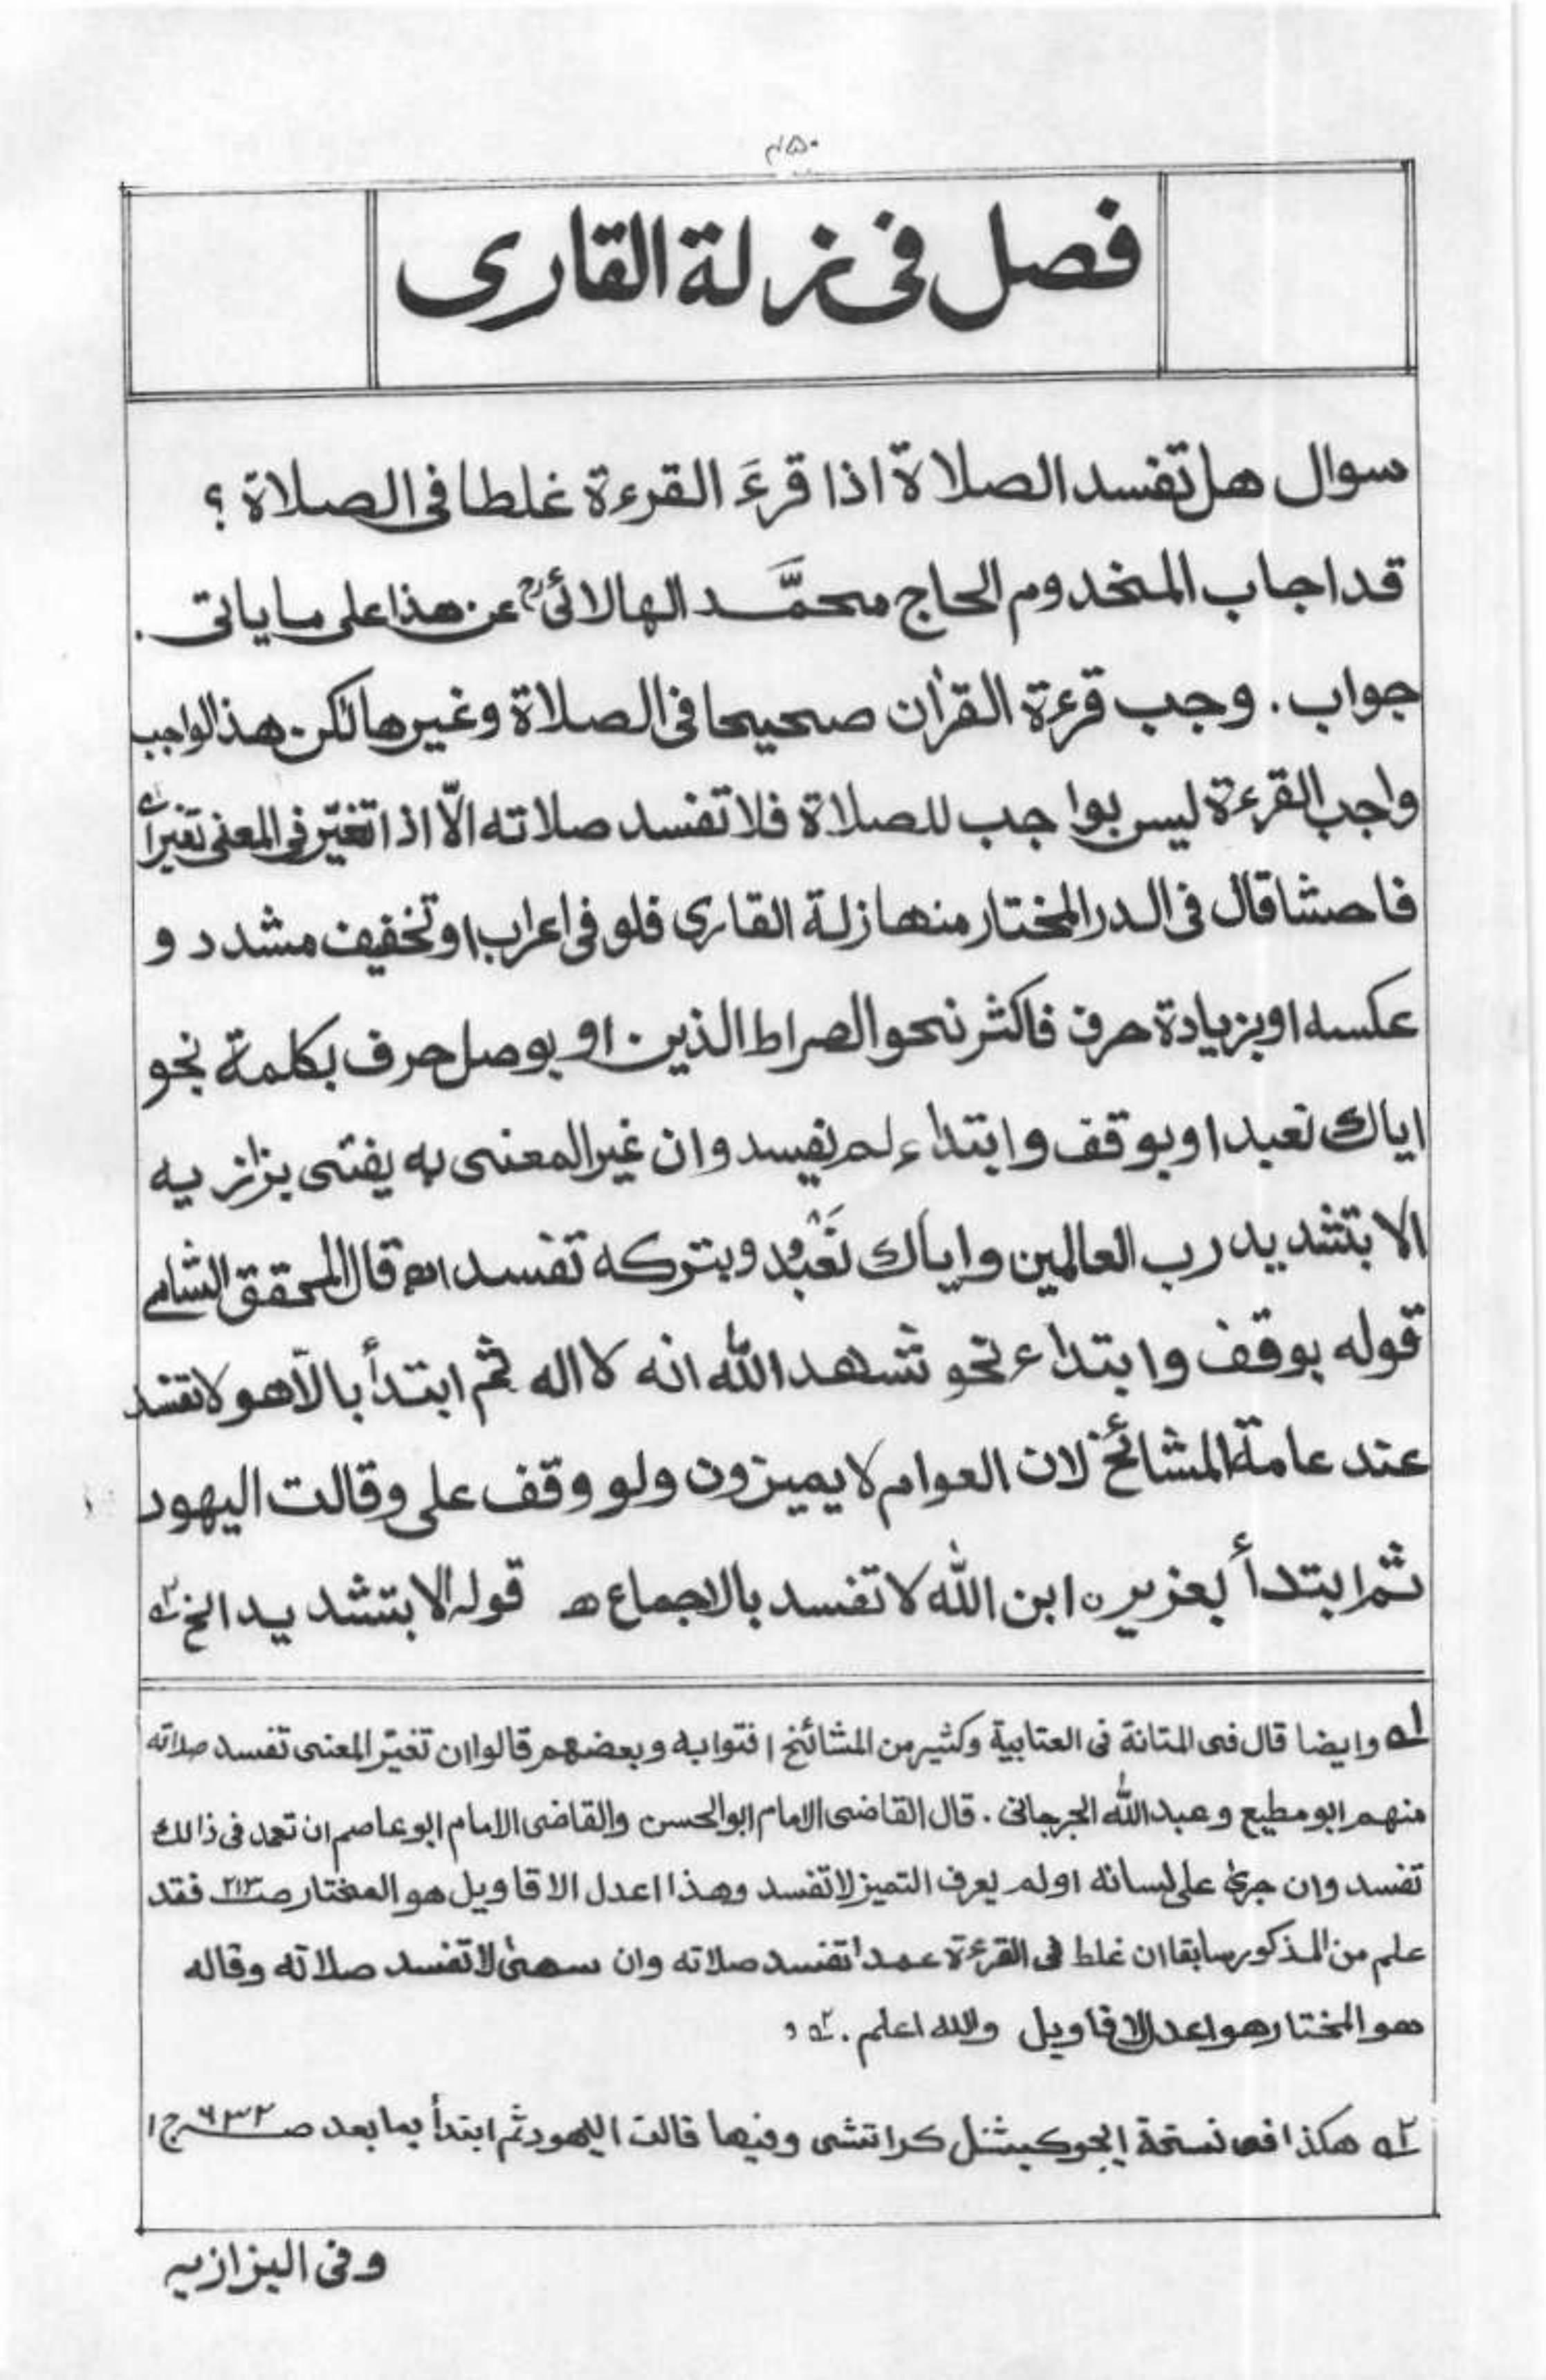 ۴۵۰
فصل فی زلة القاری
سوال هل تفسد الصلاة اذا قرءَ القرءة غلطا فی الصلاة ؟
قد اجاب المخدوم الحاج محمَّد الهالائیؒ عن هذا علی ما یاتی .
جواب . وجب قرءة القرأن صحیحا فی الصلاة وغیرها لکن هذا لواجب
واجب القرءة لیس بواجب للصلاة فلا تفسد صلاته الّا اذا تغیّر فی المعنی تغیراً
فاحشا قال فی الدر المختار منها زلة القاری فلو فی اعراب او تخفیف مشدد و
عکسه او بزیادة حرف فاکثر نحو الصراط الذین او بوصل حرف بکلمة نحو
ایاك نعبد او بوقف وابتداء لم تفسد وان غیر المعنی به یفتی بزازیه
الا بتشدید رب العالمین وایاك نَعْبُدُ وبترکه تفسد اھ قال المحقق الشامی
قوله بوقف وابتداء نحو شهد الله انه لا اله ثم ابتدأ بالّا هو لا تفسد
عند عامة المشائخ لان العوام لا یمیزون ولو وقف علی وقالت الیهود
ثم ابتدأ بعزیر ن ابن الله لا تفسد بالاجماع ھ قوله الا بتشدید الخ ۲ه
۱ه وایضا قال فی المتانة فی العتابیة وکثیر من المشائخ افتوا به وبعضهم قالوا ان تغیّر المعنی تفسد صلاته
منهم ابو مطیع وعبدالله الجرجانی . قال القاضی الامام ابو الحسن والقاضی الامام ابو عاصم ان تعمد فی ذالك
تفسد وان جریٰ علی لسانه او لم یعرف التمیز لا تفسد وهذا اعدل الاقاویل هو المختار صـ۲۱۳ فقد
علم من المذکور سابقا ان غلط فی القرءة عمداً تفسد صلاته وان سهیٰ لا تفسد صلاته وقاله
هو المختار هو اعدل الاقاویل والله اعلم .
۲ه هکذا فی نسخة ایجوکیشنل کراتشی وفیها قالت الیهود ثم ابتدأ بما بعد صـ۶۳۲ ج ۱
وفی البزازیه